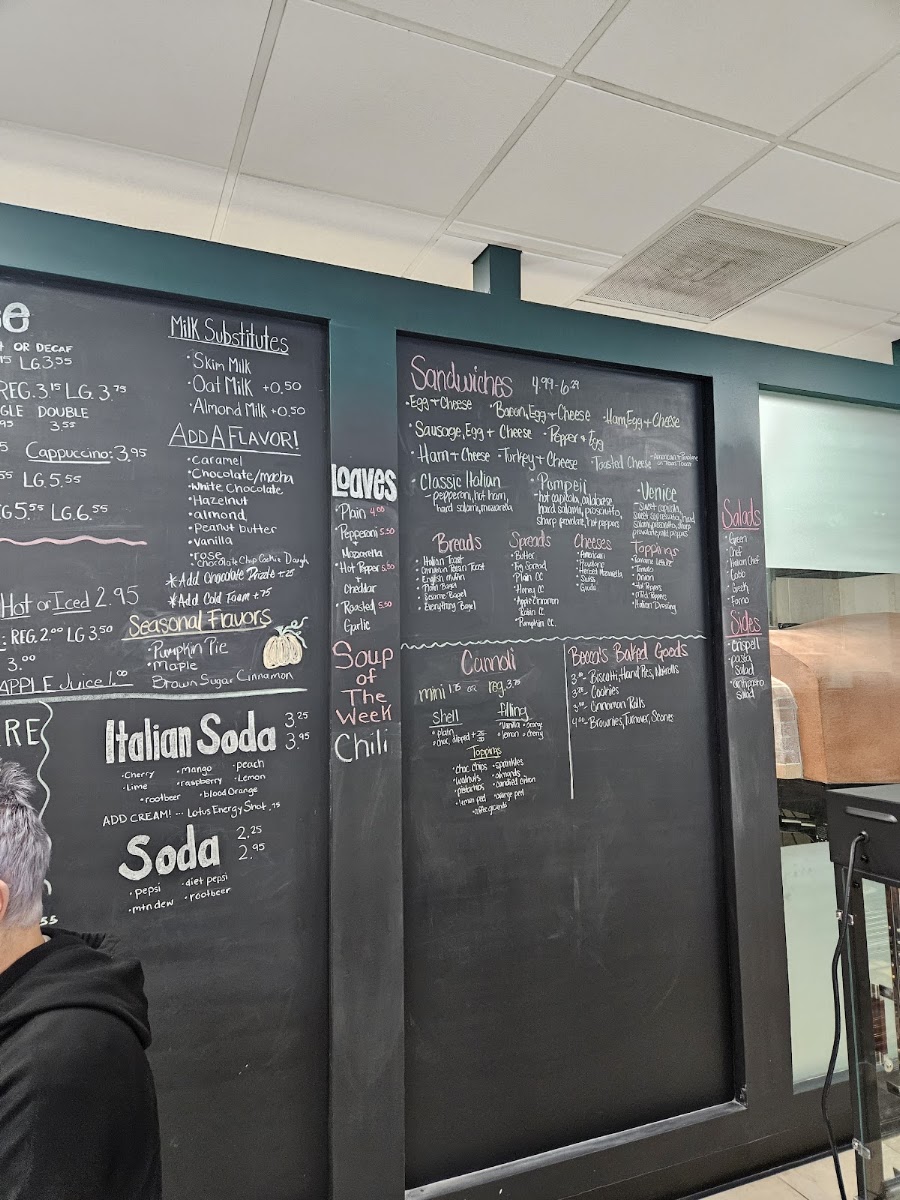 OR DECAF
LG 3.55
REG. 3.15 LG 3.75
DOUBLE
3.55
Cappuccino: 3.95
LG 5.55
LG. 6.55
Hot or Iced 2.95
REG. 2.00 LG 3.50
3.00
APPLE Juice 1.00
Milk Substitutes
• Skim Milk
• Oat Milk +0.50
• Almond Milk +0.50
ADD A FLAVOR!
• Caramel
• Chocolate/mocha
• White Chocolate
• Hazelnut
• almond
• Peanut butter
• Vanilla
• rose
• Chocolate Chip Cookie Dough
*Add Chocolate Drizzle +.25
*Add Cold Foam +.75
Seasonal Flavors
• Pumpkin Pie
• Maple
Brown Sugar Cinnamon
Italian Soda 3.25
3.95
• Cherry • mango • peach
• Lime • raspberry • Lemon
• rootbeer • blood Orange
ADD CREAM! ... Lotus Energy Shot .75
Soda 2.25
2.95
• pepsi • diet pepsi
• mtn dew • rootbeer
Loaves
• Plain 4.00
• Pepperoni 5.50
+
Mozzarella
• Hot Pepper 5.50
+
Cheddar
• Roasted 5.50
Garlic
Soup
of
The
Week
Chili
Sandwiches 4.99-6.29
• Egg + Cheese • Bacon, Egg + Cheese • Ham, Egg + Cheese
• Sausage, Egg + Cheese • Pepper + Egg
• Ham + Cheese • Turkey + Cheese • Toasted Cheese
• Classic Italian
- pepperoni, hot ham,
hard salami, mozzarella
• Pompeii
- hot capicola, calabrese
hard salami, prosciutto,
sharp provolone, hot peppers
• Venice
- sweet capicola,
sweet sopressata, hard
salami, prosciutto, sharp
provolone, mild peppers
Breads
• Italian Toast
• Cinnamon Raisin Toast
• English Muffin
• Plain Bagel
• Sesame Bagel
• Everything Bagel
Spreads
• Butter
• Fig Spread
• Plain CC
• Honey CC
• Apple Cinnamon
Raisin CC
• Pumpkin CC
Cheeses
• American
• Provolone
• Sliced Mozzarella
• Swiss
• Gouda
Toppings
• Romaine Lettuce
• Tomato
• Onion
• Hot Peppers
• Mild Peppers
• Italian Dressing
Cannoli
mini 1.75 or reg. 3.75
Shell
• plain
• choc. dipped +
filling
• Vanilla • orange
• lemon • cherry
Toppings
• choc. chips • sprinkles
• walnuts • almonds
• pistachios • candied citron
• lemon peel • orange peel
• coffee grounds
Bocca's Baked Goods
Biscotti, Hand Pies, Nutrolls
Cookies
Cinnamon Rolls
Brownies, Turnover, Scones
Salads
• Green
• Chef
• Italian Chef
• Cobb
• Greek
• Farro
Sides
• Crispelli
• pasta
salad
• antipasto
salad